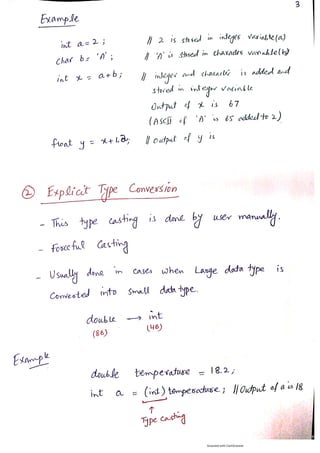 3
Example
int a = 2 ; // 2 is stored in integer variable(a)
char b = 'A' ; // 'A' is stored in character variable(b)
int x = a+b ; // integer and character is added and
stored in integer variable
Output of x is 67
(ASCII of 'A' is 65 added to 2)
float y = x+1.2; // Output of y is
② Explicit Type Conversion
- This type casting is done by user manually.
- Forceful Casting
- Usually done in cases when Large data type is
Converted into small data type.
double → int
(8B) (4B)
Example
double temperature = 18.2 ;
int a = (int) temperature ; // Output of a is 18
↑
Type casting
Scanned with CamScanner